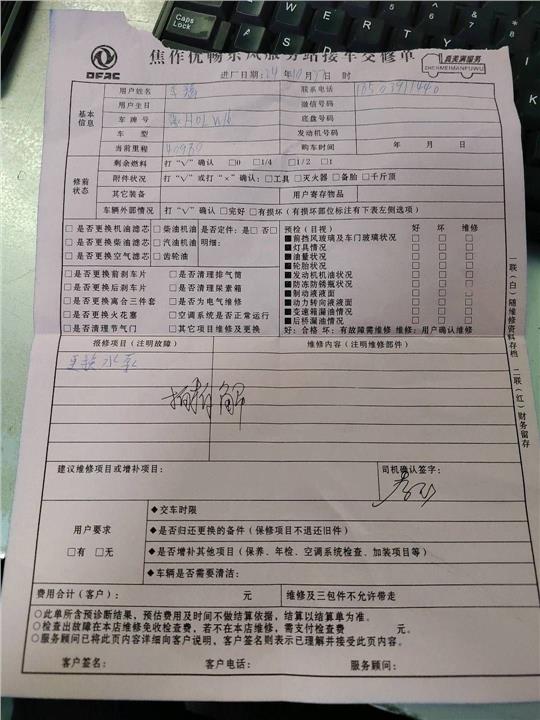 Caps Lock
W E R T Y
DFAC
焦作优畅东风服务站接车交修单
真美满服务
ZHENMEIMANFUWU
进厂日期：24年10月 日 时
基本信息
用户姓名 联系电话
用户生日 微信号码
车牌号 底盘号码
车 型 发动机号码
当前里程 购车时间 年 月 日
修前状态
剩余燃料 打“√”确认 □0 □1/4 □1/2 □1
附件状况 打“√”或打“×”确认：□工具 □灭火器 □备胎 □千斤顶
其它装备 用户寄存物品
车辆外部情况 打“√”确认 □完好 □有损坏（有损坏部位标注有下表左侧选项）
□是否更换机油滤芯 □柴油机油 是否定件：是□ 否□
□是否更换柴油滤芯 □汽油机油 明细：
□是否更换空气滤芯 □齿轮油
□是否更换前刹车片 □是否清理排气筒
□是否更换后刹车片 □是否清理尿素箱
□是否更换离合三件套 □是否为电气维修
□是否更换火花塞 □空调系统是否正常运行
□是否清理节气门 □其它项目维修及更换
预检（目视） 好 坏 维修
■前挡风玻璃及车门玻璃状况 □ □ □
■灯具情况 □ □ □
■油量状况 □ □ □
■轮胎状况 □ □ □
■发动机机油状况 □ □ □
■防冻防锈瓶状况 □ □ □
■制动液液面 □ □ □
■动力转向液液面 □ □ □
■变速箱漏油情况 □ □ □
■后桥漏油情况 □ □ □
好：合格 坏：有故障需维修 维修：用户确认维修
报修项目（注明故障） 维修内容（注明维修部件）
更换水泵
建议维修项目或增补项目： 司机确认签字：
用户要求
□有 □无
◆交车时限
◆是否归还更换的备件（保修项目不退还旧件）
◆是否增补其他项目（保养、年检、空调系统检查、加装项目等）
◆车辆是否需要清洁：
费用合计（客户）： 元 维修及三包件不允许带走
○此单所含预诊断结果，预估费用及时间不做结算依据，结算以结算单为准。
○检查出故障在本店维修免收检查费，若不在本店维修，需支付检查费 元。
○服务顾问已将此页内容详细向客户说明，客户签名则表示已理解并接受此页内容。
客户签名： 客户电话： 服务顾问：
一联（白）随维修资料存档 二联（红）财务留存